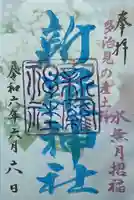 奉拝
多治見の産土神
水無月招福
新羅神社
新羅神社
令和六年六月八日